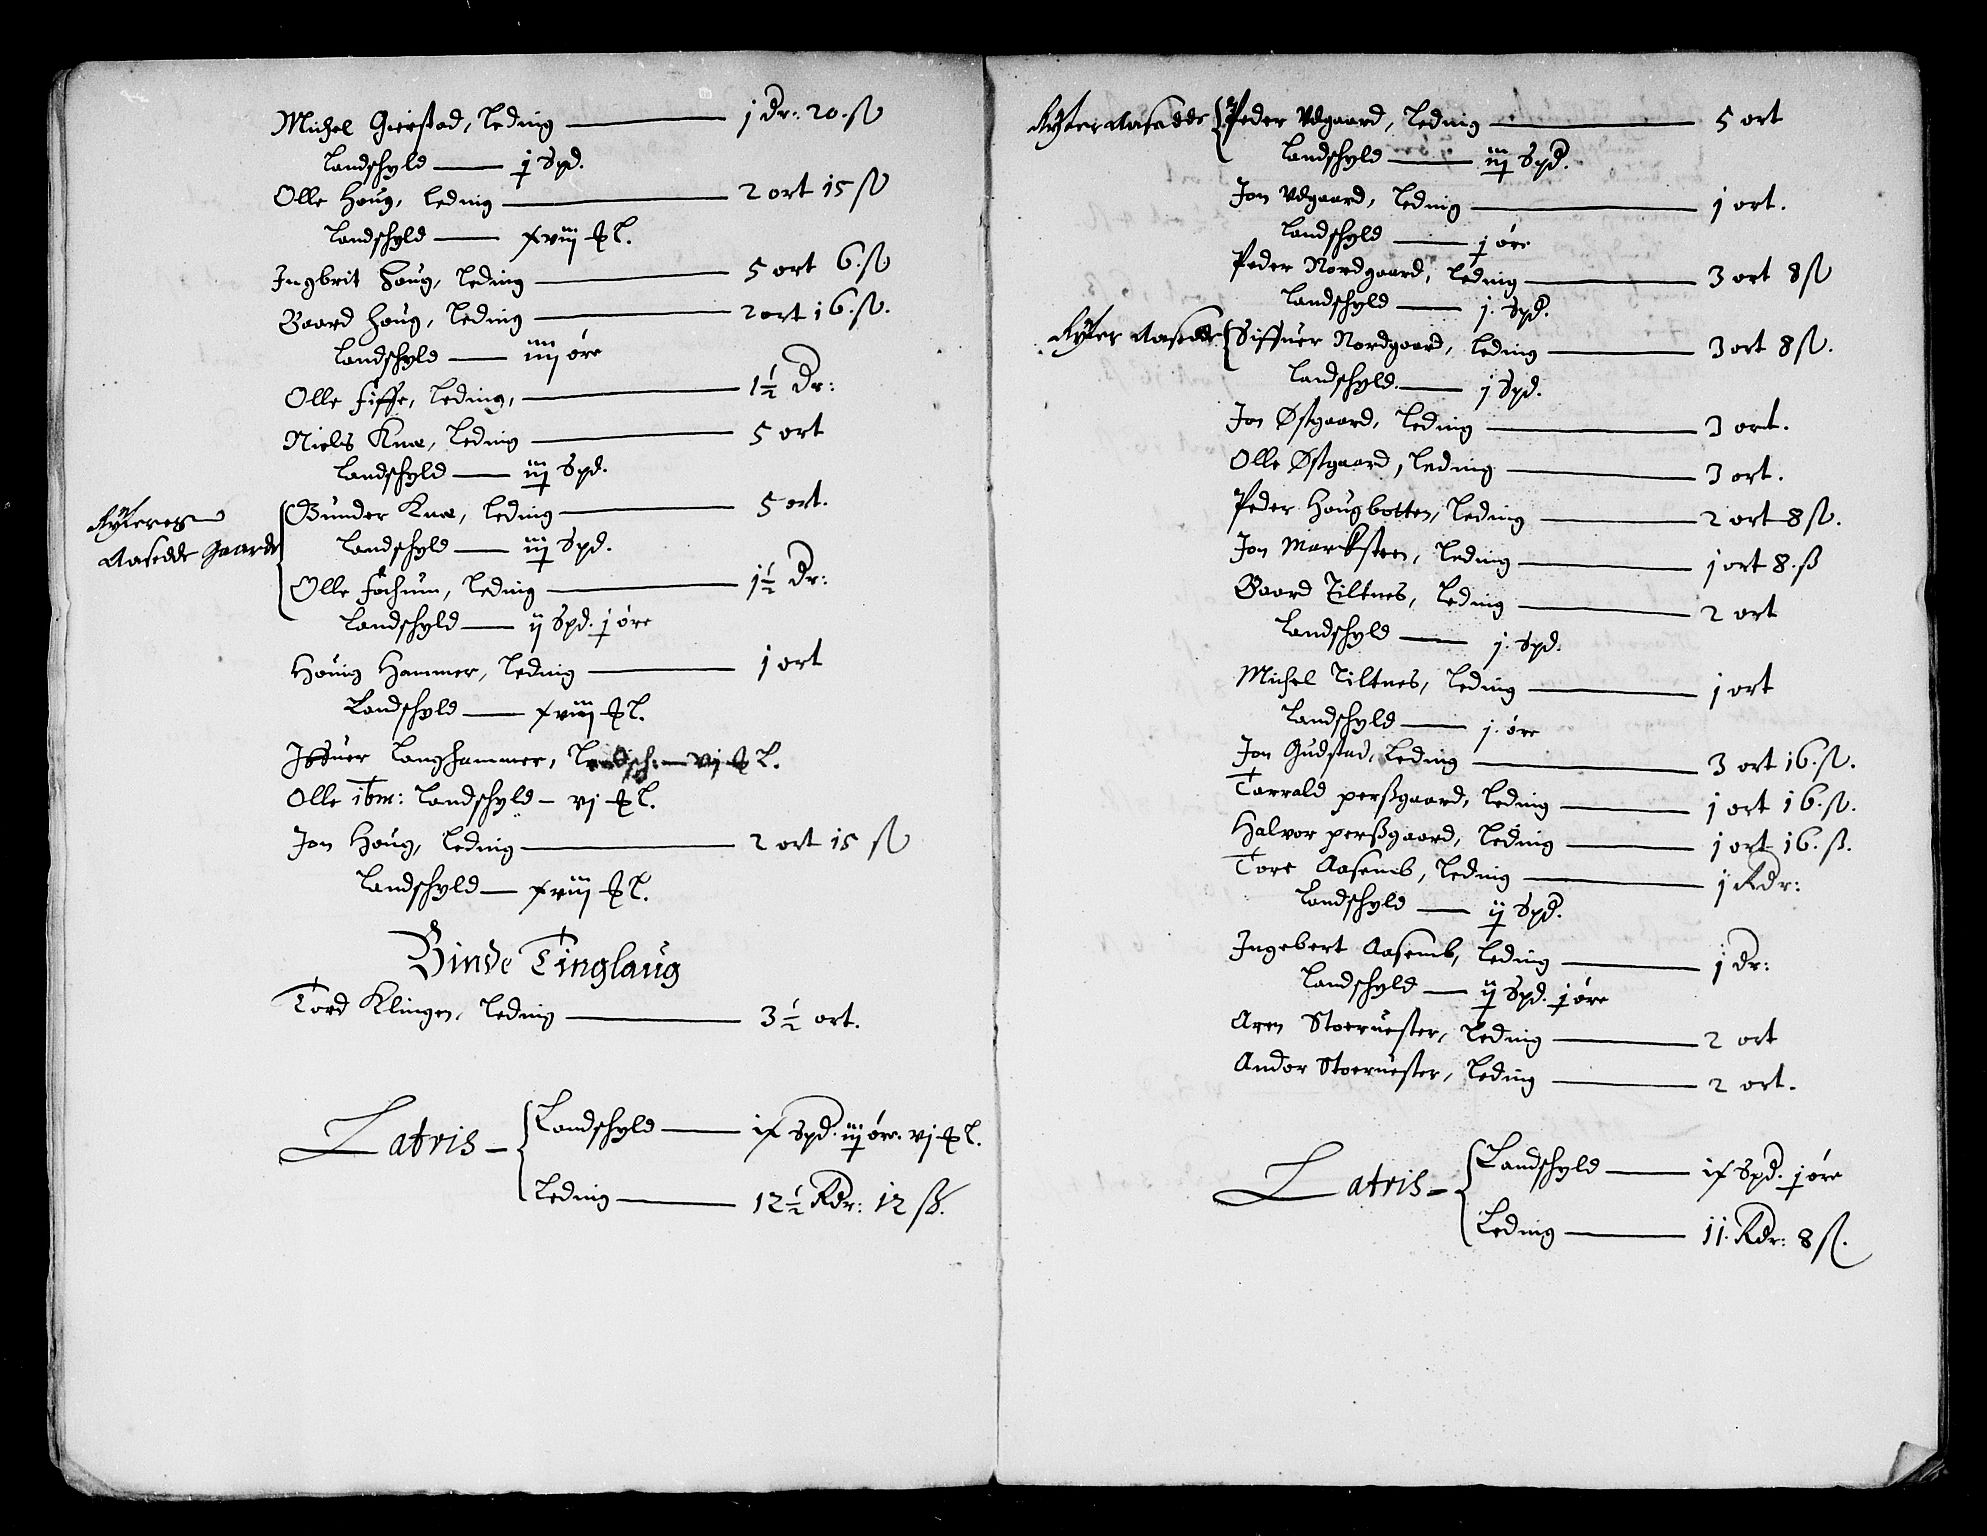 Michel Gierstad, leding — 1 dr: 20 ß
Landschyld — j Spd.
Olle Houg, leding — 2 ort 15 ß
Landschyld — xviij ꝳl.
Ingbrit Houg, leding — 5 ort 6 ß
Baard Houg, leding — 2 ort 16 ß.
Landschyld — iiij øre
Olle fiffe, leding, — 1½ dr:
Niels Knæ, leding — 5 ort
Landschyld — iij Spd.
Ryteres
Aasedde Gaarde
Gunder Knæ, leding — 5 ort.
Landschyld — iij Spd.
Olle fochum, leding — 1½ dr:
Landschyld — ij Spd. j øre
Houig Hammer, leding — 1 ort
Landschyld — xviij ꝳl.
Iffuer Langhammer, Landsch: — vj ꝳl.
Olle ibm: Landschyld — vj ꝳl.
Jon Houg, leding — 2 ort 15 ß
Landschyld — xviij ꝳl.
Binde Tinglaug
Tord Klingen, leding — 3½ ort.
Latris —
Landschyld — ix Spd. iij øre. vj ꝳl.
Leding — 12½ Rdr: 12 ß.
Ryter Aasedde
Peder Udgaard, leding — 5 ort
Landschyld — iij Spd.
Jon Udgaard, leding — 1 ort.
Landschyld — j øre
Peder Nordgaard, leding — 3 ort 8 ß
Landschyld — j. Spd.
Ryter Aasedde
Siffuer Nordgaard, leding — 3 ort 8 ß.
Landschyld. — j Spd.
Jon Østgaard, leding — 3 ort.
Olle Østgaard, leding — 3 ort.
Peder Hougbotten, leding — 2 ort 8 ß.
Jon Marcksteen, leding — 1 ort 8. ß
Baard Tiltnes, leding — 2 ort
Landschyld — j. Spd.
Michel Tiltnes, leding — 1 ort
Landschyld — j. øre
Jon Gudstad, leding — 3 ort 16. ß.
Tarrald perßgaard, leding — 1 ort 16. ß.
Halvor perßgaard, leding — 1 ort 16. ß.
Tore Aasemb, leding — 1 Rdr:
Landschyld — ij Spd.
Ingebert Aasemb, leding — 1 dr:
Landschyld — ij Spd. j øre
Aren Stoeruester, leding — 2 ort
Andor Stoeruester, leding — 2 ort.
Latris —
Landschyld — ix Spd. j øre
Leding — 11. Rdr: 8 ß.